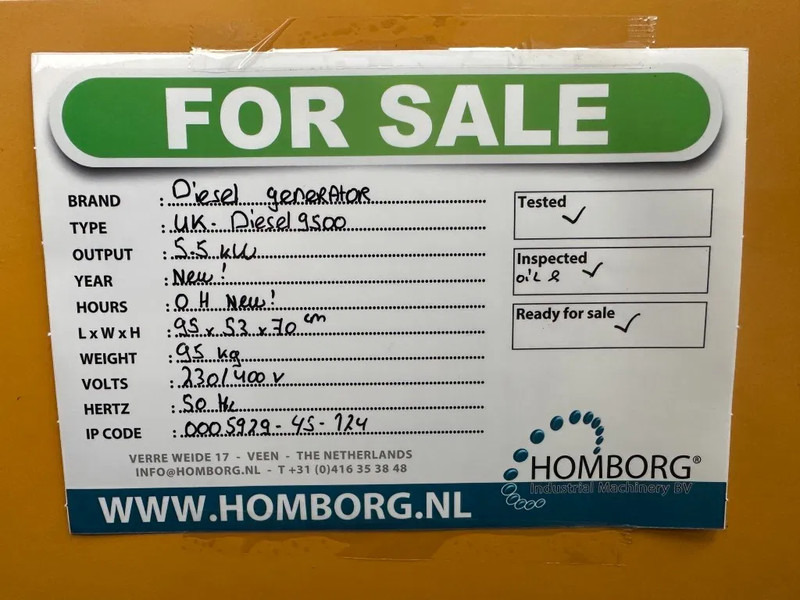 FOR SALE
BRAND : Diesel generator
TYPE : UK - Diesel 9500
OUTPUT : 5.5 kW
YEAR : New!
HOURS : 0 H New!
L x W x H : 95 x 53 x 70 cm
WEIGHT : 95 kg
VOLTS : 230/400 V
HERTZ : 50 Hz
IP CODE : 0005929-45-124
Tested ✓
Inspected
oil & ✓
Ready for sale ✓
VERRE WEIDE 17 - VEEN - THE NETHERLANDS
INFO@HOMBORG.NL - T +31 (0)416 35 38 48
HOMBORG®
Industrial Machinery BV
WWW.HOMBORG.NL